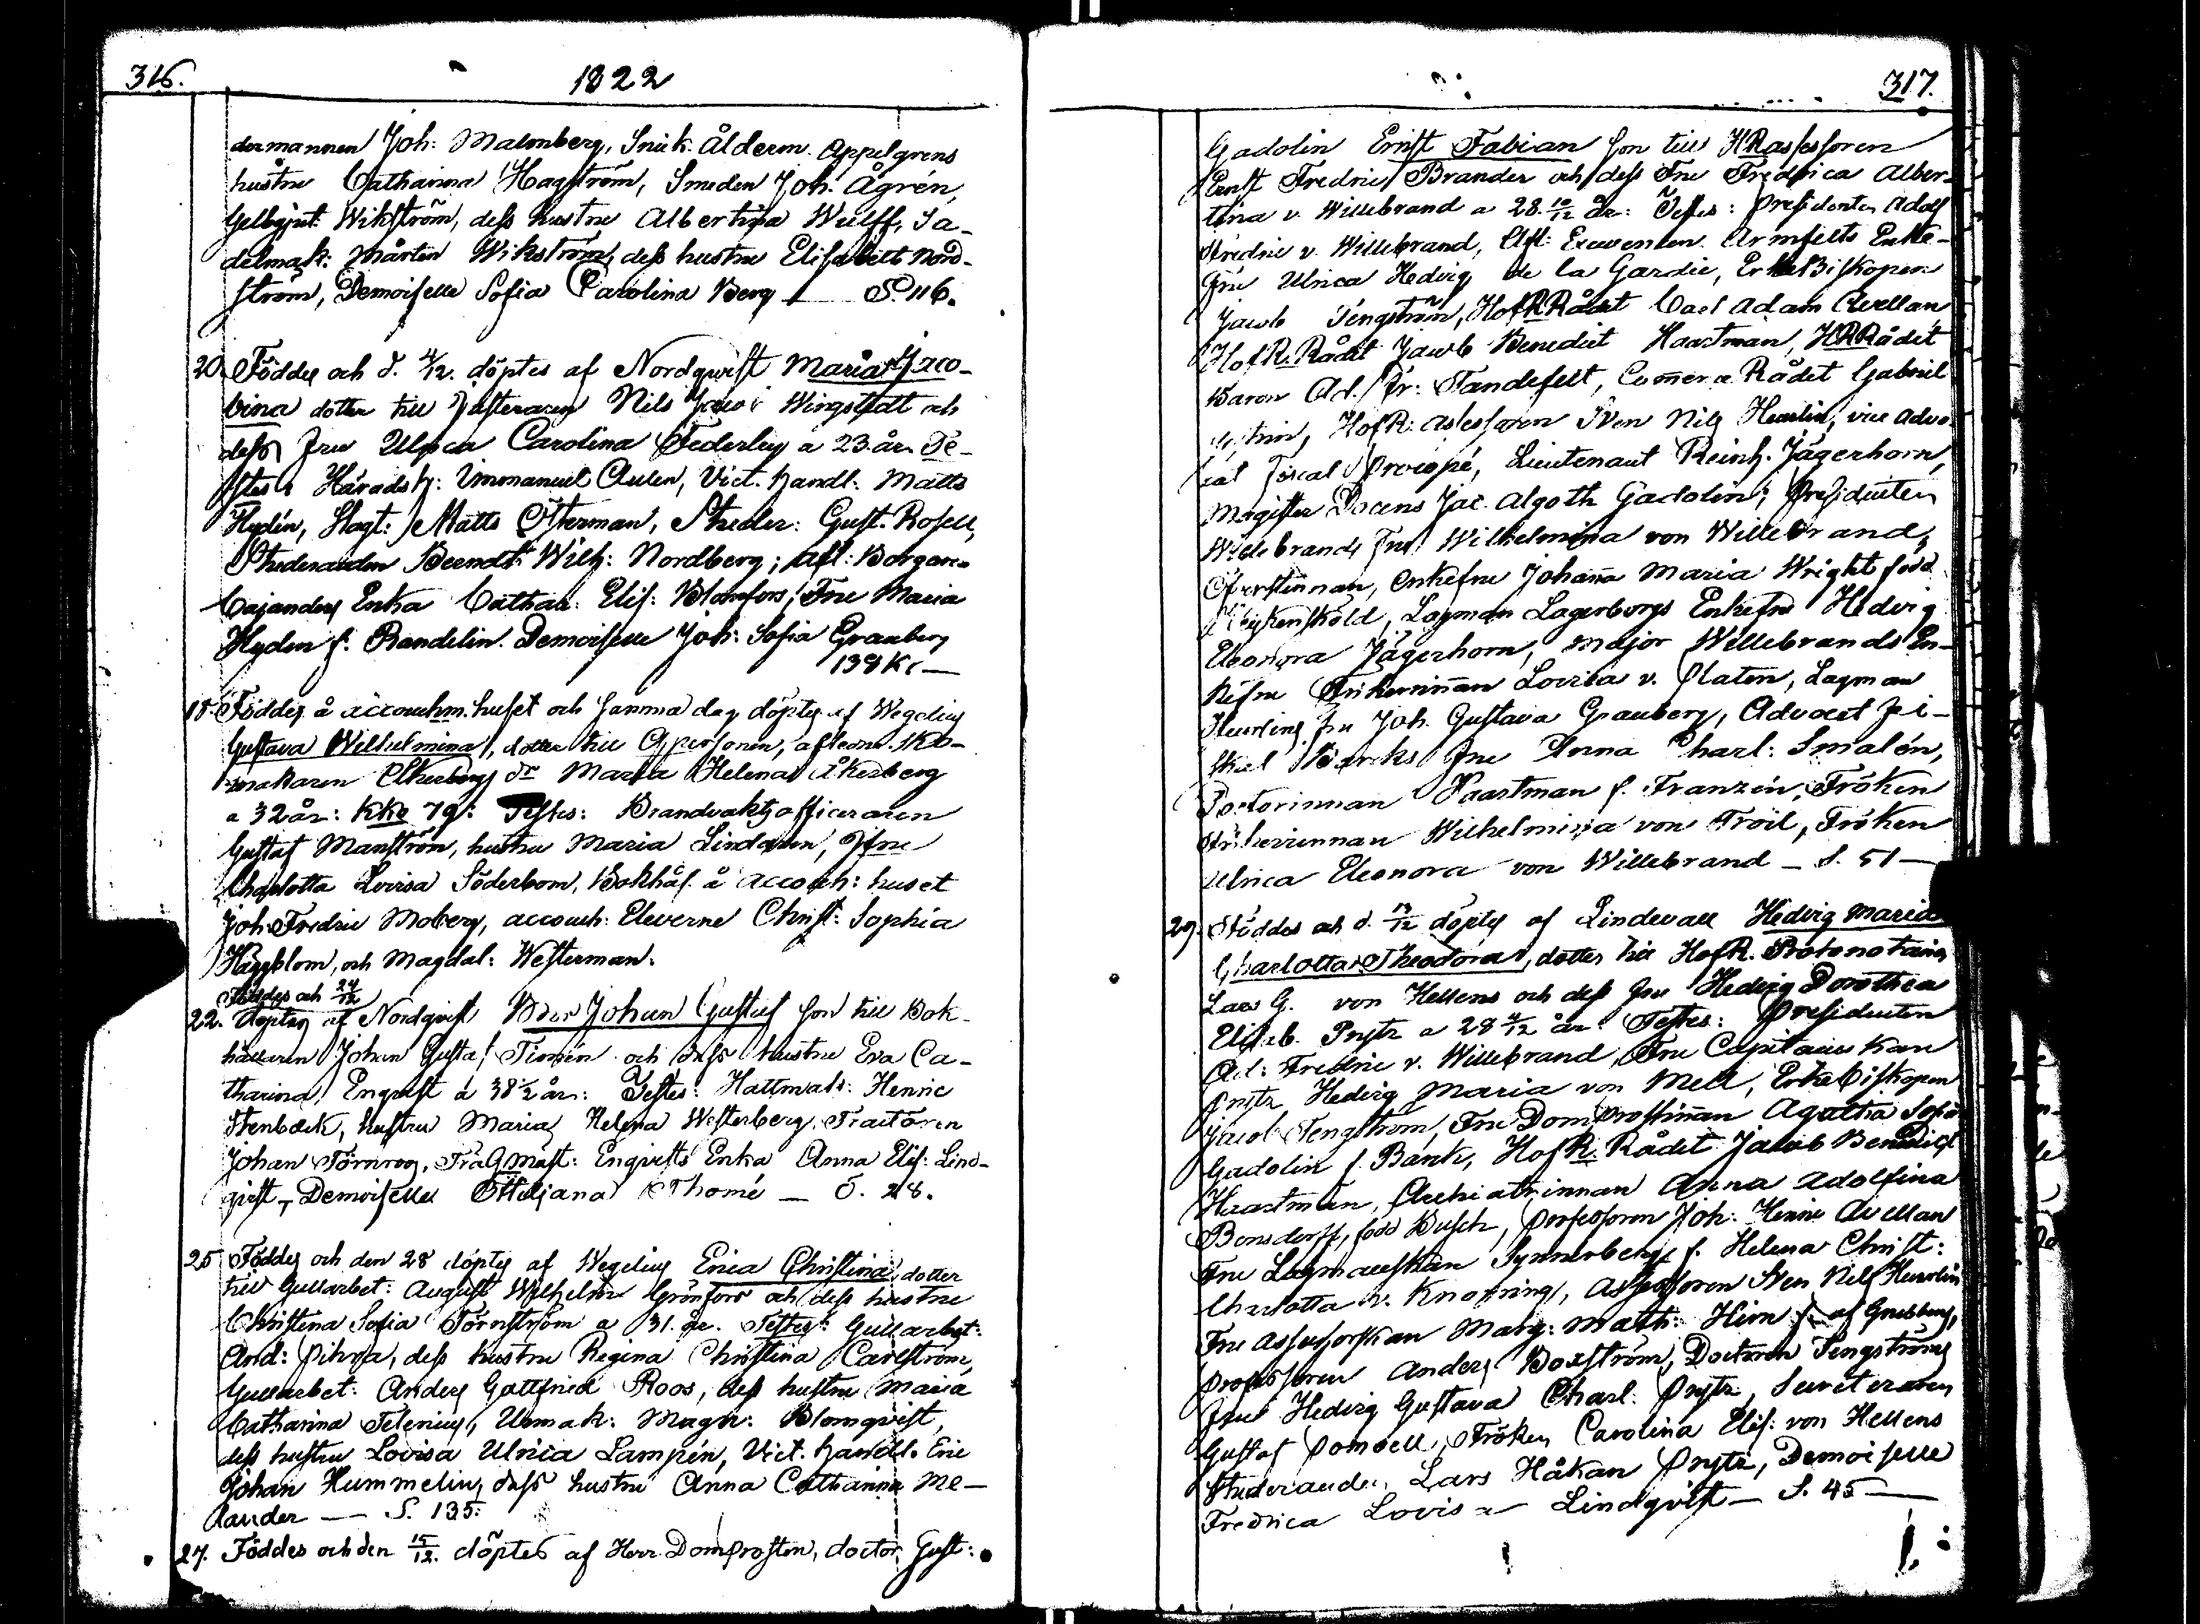 316.
1822
dermannen Joh: Malmberg, Snick. Ålderm. Appelgrens
hustru Catharina Hagström, Smeden Joh: Ågrén,
Gelbgjut: Wikström, dess hustru Albertina Wulff, Sa-
delmak: Mårten Wikström, dess hustru Elisabeth Nord-
ström, Demoiselle Sofia Carolina Berg — S. 116.
20. Föddes och d. 4/12. döptes af Nordqvist Maria Jaco-
bina dotter till Nils Jacob Wingstadt och
dess Fru Ulrica Carolina Federley a 23 år. Te-
stes: Häradsh: Immanuel Aulen, Vict. handl: Matts
Hydén, Slagt: Matts Österman, Studer: Gust. Rosell,
Studeranden Berndt Wilh: Nordberg; Afl: Borgaren
Cajanders Enka Cathar: Elis: Blomfors, Fru Maria
Hyden f. Randelin. Demoiselle Joh: Sofia Granberg
138 K. —
18. Föddes å accouchm. huset och samma dag döptes af Wegelius
Gustava Wilhelmina, dotter till Qpersonen, afledne Sko-
makaren Åkerbergs dr Maria Helena Åkerberg
a 32 år: KKo 79: Testes: Brandvaktsofficeraren
Gustaf Manström, hustru Maria Lindgren, Jfru
Charlotta Lovisa Söderbom, Bokhål. å accouch: huset
Joh: Fredric Moberg, accouch: Eleverne Christ: Sophia
Häggblom, och Magdal: Westerman.
Föddes och 24/12
22. döptes af Nordqvist Johan Gustaf son till Bok-
hållaren Johan Gustaf Timén och dess hustru Eva Ca-
tharina Engqvist a 38 1/2 år: Testes: Hattmak: Henric
Stenbäck, hustru Maria Helena Westerberg, Tractören
Johan Törnroos, Engqvists Enka Anna Elis: Lind-
qvist, Demoiselle Ottiljana Thomé — S. 28.
25 Föddes och den 28 döptes af Wegelius Erica Christina, dotter
till Gullarbet: August Wilhelm Grönfors och dess hustru
Christina Sofia Törnström a 31. år. Testes: Gullarbet:
And: Pihra, dess hustru Regina Christina Carlström,
Gullarbet: Anders Gottfried Roos, dess hustru Maria
Catharina Telenius, Urmak: Magn: Blomqvist,
dess hustru Lovisa Ulrica Lampén, Vict. handl. Eric
Johan Hummelin, dess hustru Anna Catharina Me-
lander — S. 135:
27. Föddes och den 15/12. döptes af Herr Domprosten, doctor Gust:
317.
Gadolin Ernst Fabian son till HRassessoren
Ernst Fredric Brander och dess Fru Fredrica Alber-
tina v. Willebrand a 28. 10/12 år: Testes: Presidenten Adolf
Fredric v. Willebrand, Afl: Armfelts Enke-
fru Ulrica Hedvig de la Gardie, ErkeBiskopen
Jacob Tengström, HofRRådet Carl Adam Avellan
HofR.Rådet Jacob Benedict Haartman, HRRådet
Baron Ad. Fr: Tandefelt, Commerce Rådet Gabriel
HofR: Assessoren Sven Nils Heurlin, vice Advo-
cat Fiscal Procopé, Lieutenant Reinh. Jägerhorn,
Magister Docens Jac. Algoth Gadolin; Presidenten
Willebrands Fru Wilhelmina von Willebrand,
Öfverstinnan, Enkefru Johanna Maria Wright född
Lagman Lagerborgs Enkefru Hedvig
Eleonora Jägerhorn, Major Willebrands En-
kefru Friherrinnan Lovisa v. Platen, Lagman
Heurlins Fru Joh. Gustava Granberg, Advocat Fi-
skal Barcks Fru Anna Charl: Smalén,
Doctorinnan Haartman f. Franzén, Fröken
Friherrinnan Wilhelmina von Troil, Fröken
Ulrica Eleonora von Willebrand — S. 51 —
29. Föddes och d. 13/12 döptes af Lindewall Hedvig Maria
Charlotta Theodora, dotter till HofR. Protonotarien
Lars G. von Hellens och dess Fru Hedvig Dorothea
Elisab. Prytz a 28 4/12 år: Testes: Presidenten
Ad: Fredric v. Willebrand, Fru Capitainskan
Prytz Hedvig Maria von Mell, ErkeBiskopen
Jacob Tengström, Fru Domprostinnan Agatha Sofia
Gadolin f. Bánk, HofR. Rådet Jacob Benedict
Haartman, Archiatrinnan Anna Adolfina
Bonsdorff, född Busch, Professoren Joh: Henric Avellan
Fru Lagmanskan Synnerberg f. Helena Christ:
Charlotta v. Knorring, Assessoren Sven Nils Heurlin
Fru Assessorskan Marg: Math: Hirn f. af Grubbens,
Professoren Anders Boxström, Doctoren Tengströms
Fru Hedvig Gustava Charl: Prytz, Secreteraren
Gustaf Pomoell, Fröken Carolina Elis: von Hellens
Studerande Lars Håkan Prytz, Demoiselle
Fredrica Lovisa Lindqvist — S. 45 —